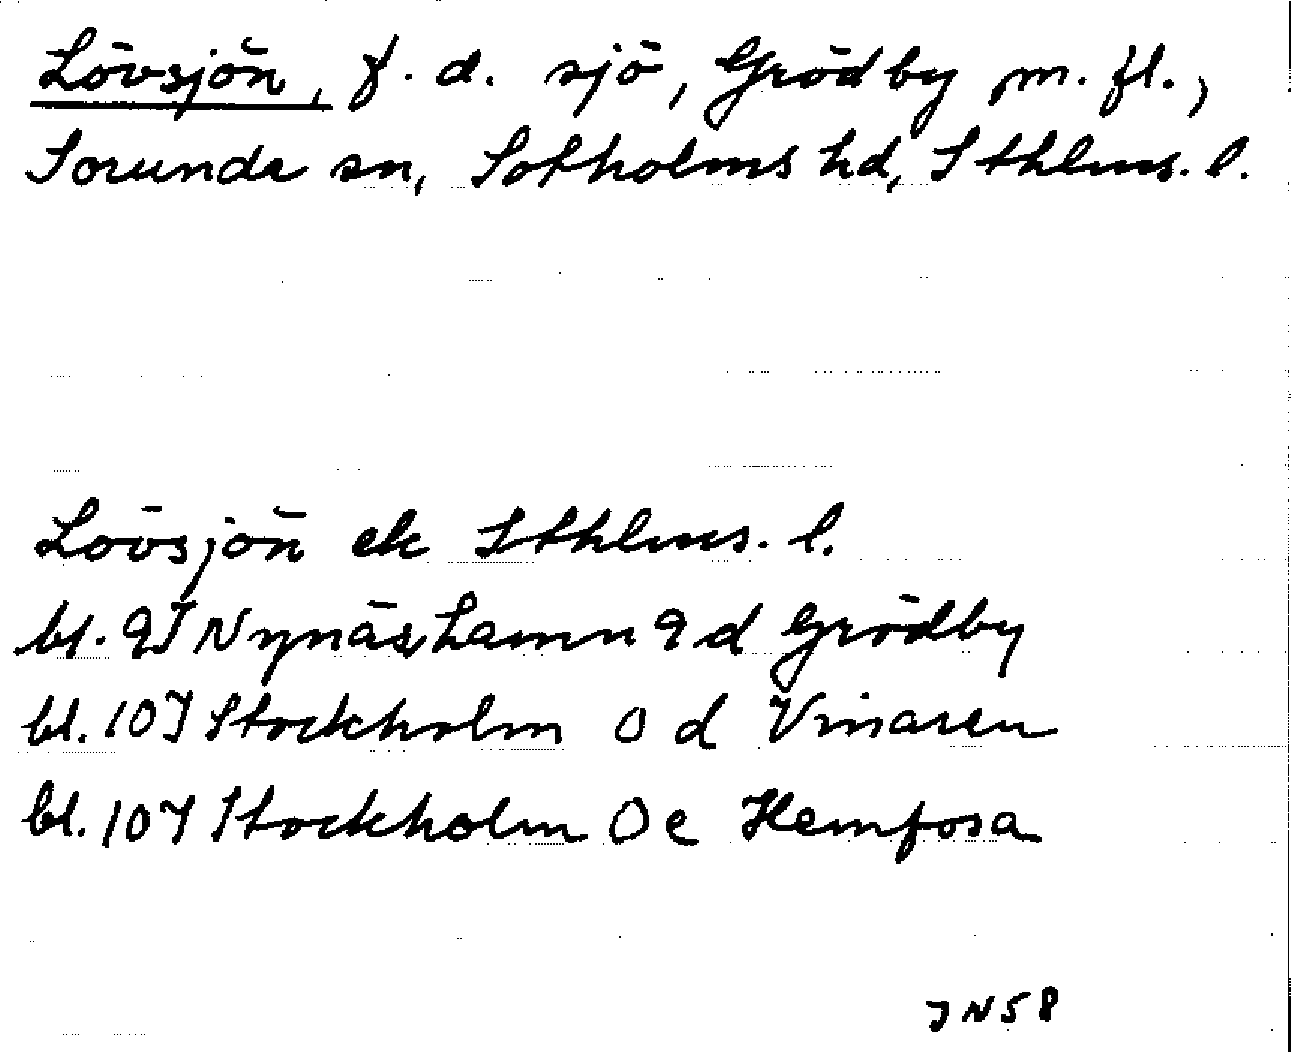 Lövsjön, f. d. sjö, Grödby m. fl.,
Sorunda sn, Sotholms hd, Sthlms. l.
Lövsjön ek Sthlms. l.
bl. 9I Nynäshamn 9 d Grödby
bl. 10I Stockholm 0 d Vinaren
bl. 10I Stockholm 0 e Hemfosa
JN58